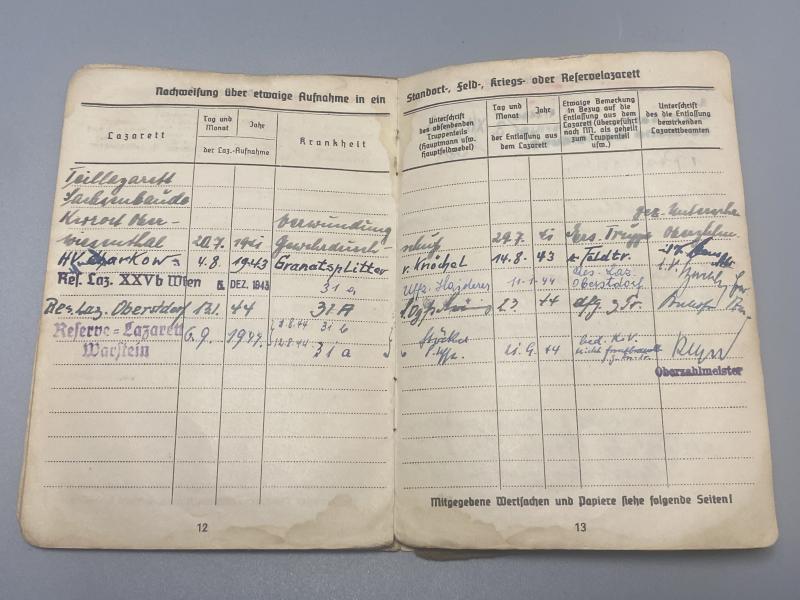 Nachweisung über etwaige Aufnahme in ein
Lazarett
Tag und
Monat
Jahr
der Laz.-Aufnahme
Krankheit
Teillazarett
Sachsenbaude
Kurort Ober-
wiesenthal 20.7. 1941 Verwundung
Gewehrdurch-
HV Charkow 4.8. 1943 Granatsplitter
Res. Laz. XXVb Wien DEZ. 1943 31a
Res. Laz. Oberstdorf 44 31A
Reserve-Lazarett 6.9. 1944 31b
Warstein 31a
12
Standort-, Feld-, Kriegs- oder Reservelazarett
Unterschrift
des absendenden
Truppenteils
(Hauptmann usw.
Hauptfeldwebel)
Tag und
Monat
Jahr
der Entlassung aus
dem Lazarett
Etwaige Bemerkung
in Bezug auf die
Entlassung aus dem
Lazarett (übergeführt
nach NN. als geheilt
zum Truppenteil
usw.)
Unterschrift
des die Entlassung
bewirkenden
Lazarettbeamten
gez. Unterschr.
schuß 29.7. 41 Ers. Truppe
v. Knöchel 14.8. 43 z. Feldtr.
Uffz. 11.1.44 Res. Laz.
Oberstdorf
2.3. 44 dfg z. Tr.
21.9. 44 bed. k.v.
nicht
Oberzahlmeister
Mitgegebene Wertsachen und Papiere siehe folgende Seiten!
13